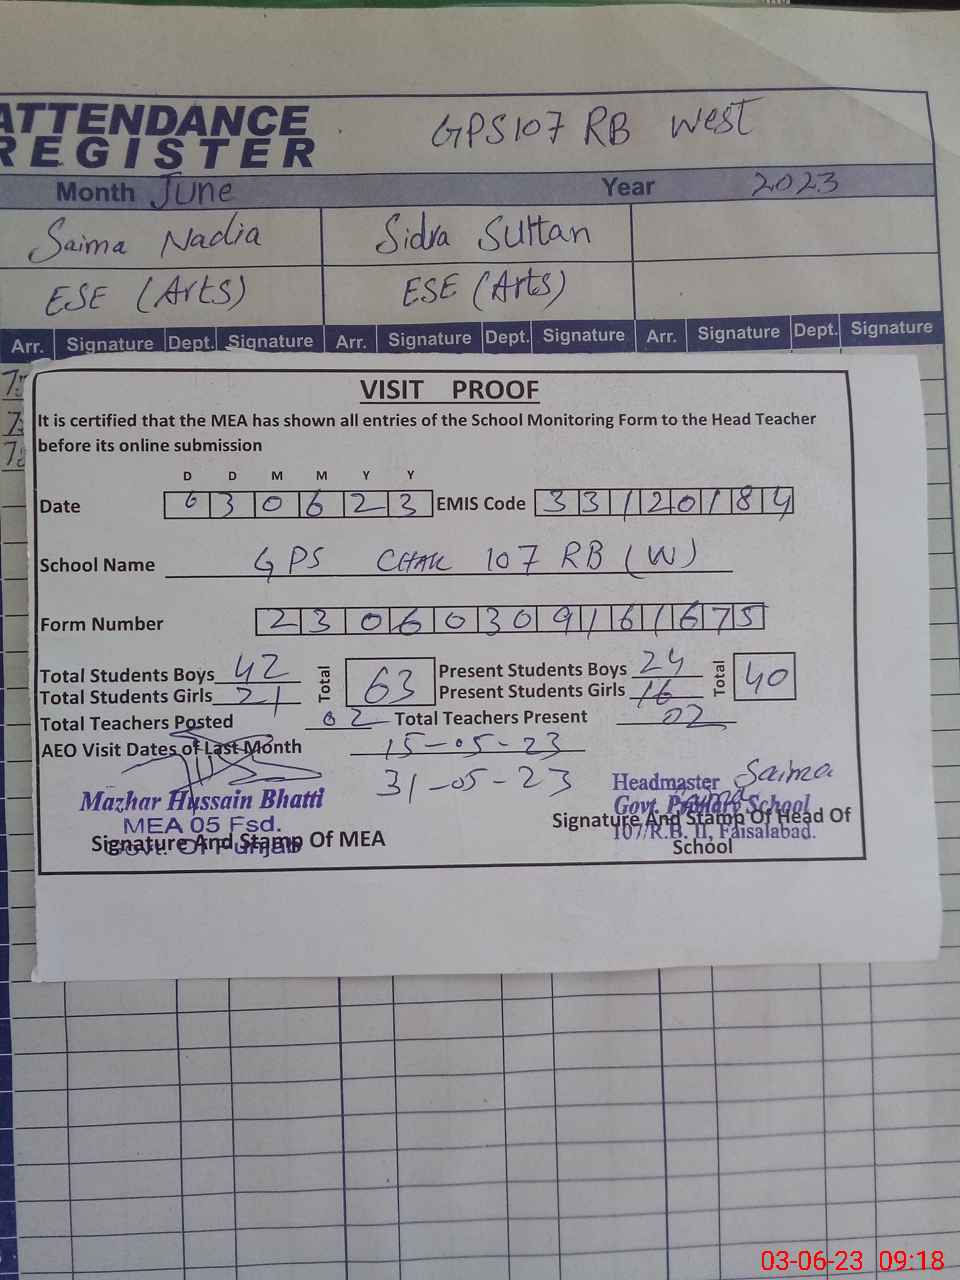 ATTENDANCE
REGISTER
GPS 107 RB West
Month June Year 2023
Saima Nadia Sidra Sultan
ESE (Arts) ESE (Arts)
Arr. Signature Dept. Signature Arr. Signature Dept. Signature Arr. Signature Dept. Signature
VISIT PROOF
It is certified that the MEA has shown all entries of the School Monitoring Form to the Head Teacher
before its online submission
D D M M Y Y
Date 030623 EMIS Code 33120184
School Name GPS CHAK 107 RB (W)
Form Number 23060309161675
Total Students Boys 42 Total 63 Present Students Boys 24 Total 40
Total Students Girls 21 Present Students Girls 16
Total Teachers Posted 02 Total Teachers Present 02
AEO Visit Dates of Last Month 15-05-23
31-05-23
Mazhar Hussain Bhatti
MEA 05 Fsd.
Govt. Of Punjab
Signature And Stamp Of MEA
Headmaster Saima
Govt. Primary School
107/R.B. II, Faisalabad.
Signature And Stamp Of Head Of
School
03-06-23 09:18